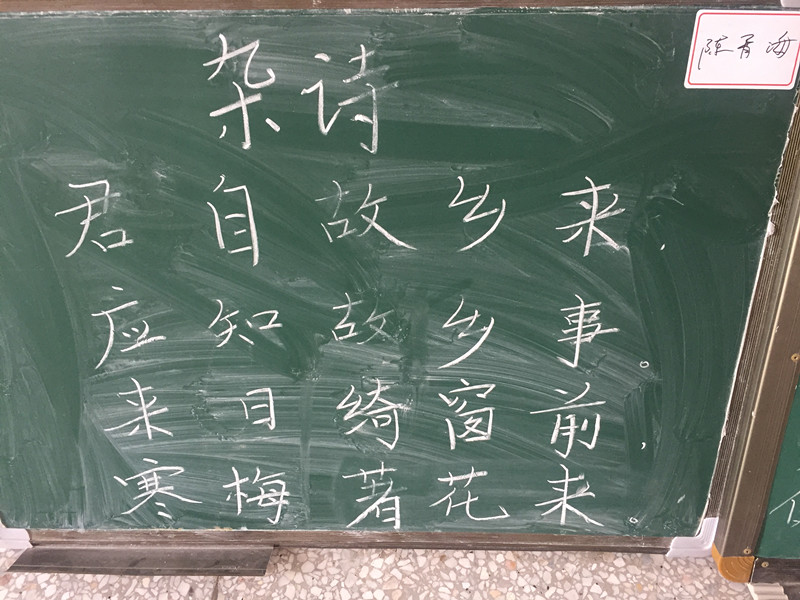 杂诗
君自故乡来，
应知故乡事。
来日绮窗前，
寒梅著花未。